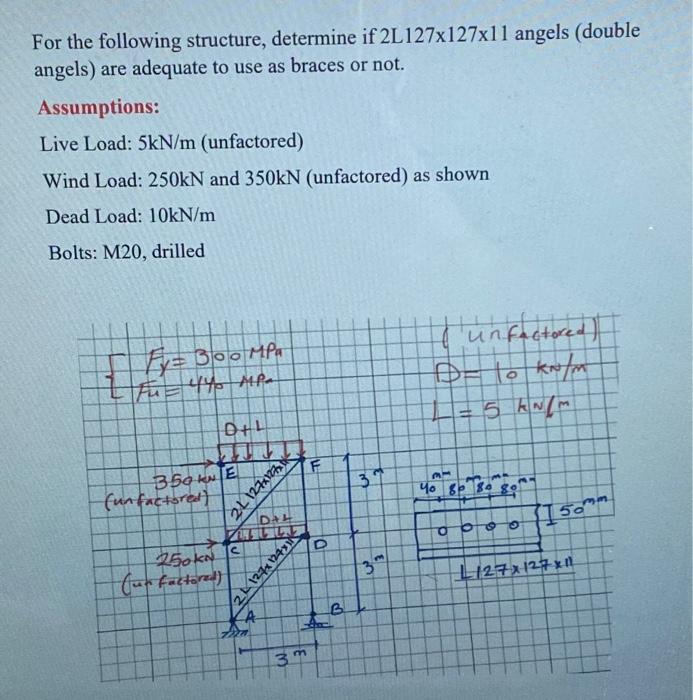 For the following structure, determine if 2L127x127x11 angels (double
angels) are adequate to use as braces or not.
Assumptions:
Live Load: 5kN/m (unfactored)
Wind Load: 250kN and 350kN (unfactored) as shown
Dead Load: 10kN/m
Bolts: M20, drilled
Fy = 300 MPa
Fu = 440 MPa
(unfactored)
D = 10 kN/m
L = 5 kN/m
D+L
350 kN
(unfactored)
E
F
2L 127x127x11
3 m
D+L
250 kN
(unfactored)
C
D
2L 127x127x11
3 m
A
B
3 m
mm mm mm mm
40 80 80 80
50 mm
L127x127x11